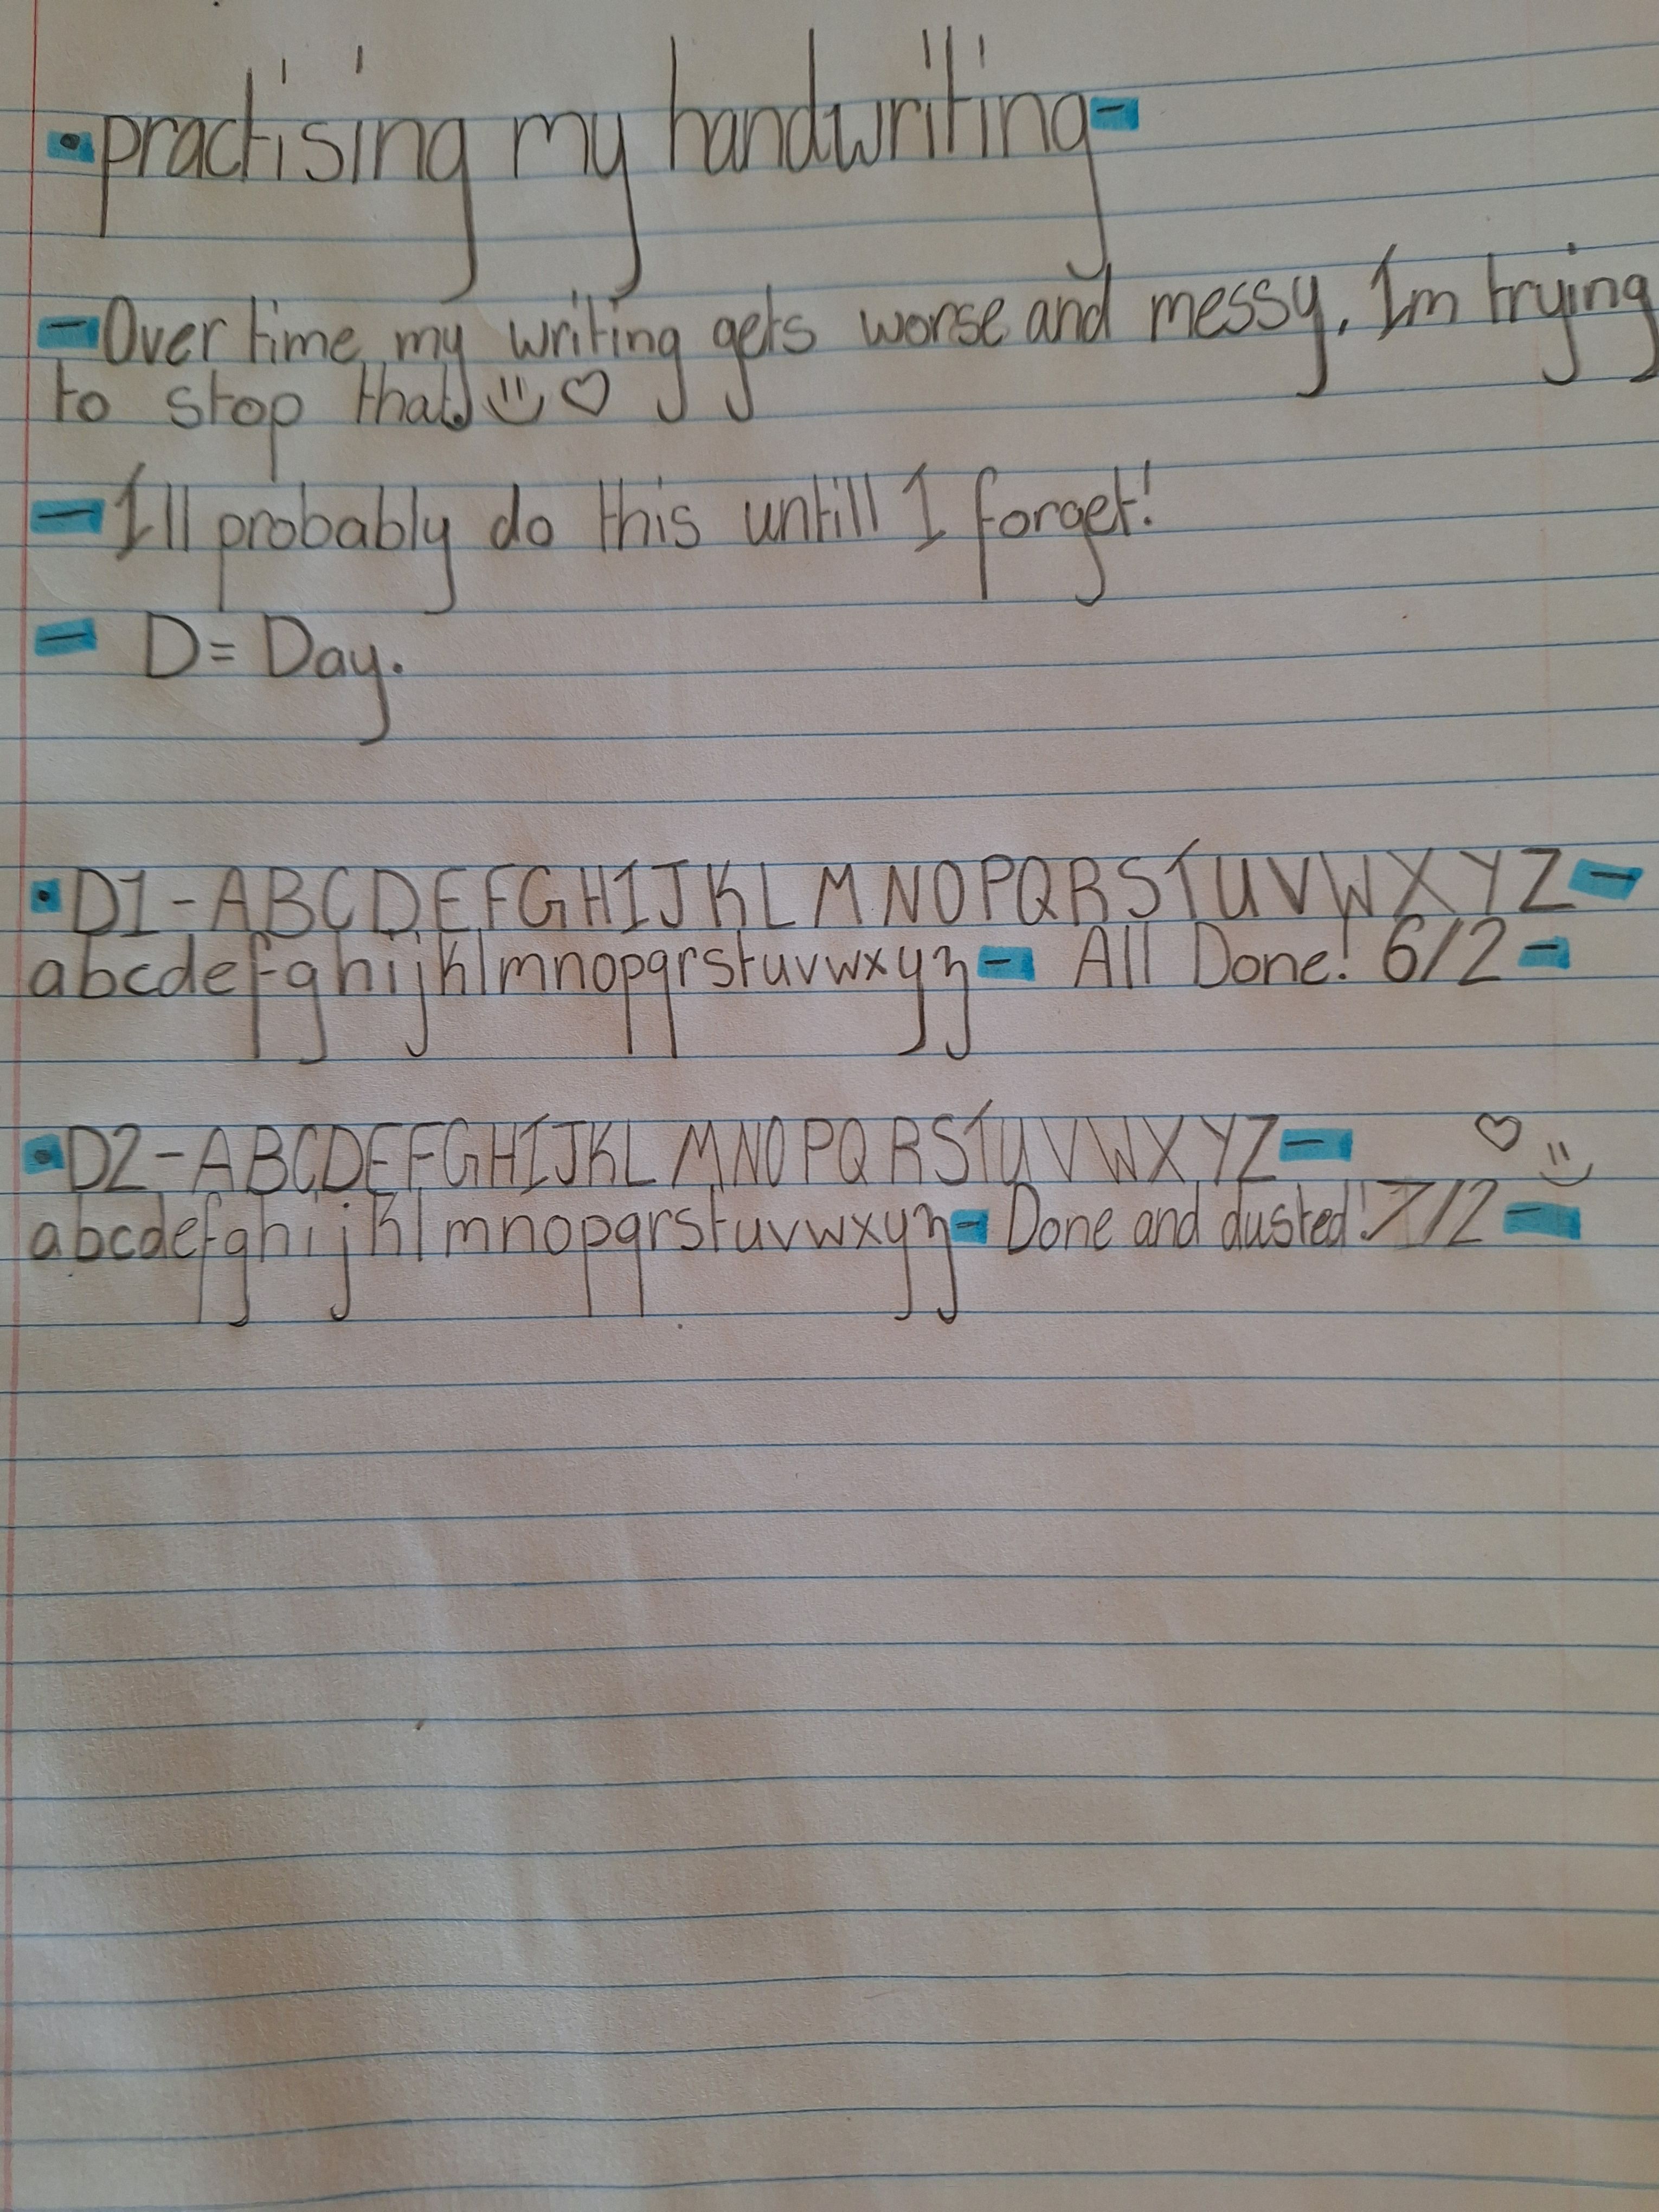 • practising my handwriting -
- Over time my writing gets worse and messy. Im trying
to stop that. ♡
- Ill probably do this untill I forget!
- D = Day.
• D1 - A B C D E F G H I J K L M N O P Q R S T U V W X Y Z -
a b c d e f g h i j k l m n o p q r s t u v w x y z - All Done! 6/2 -
• D2 - A B C D E F G H I J K L M N O P Q R S T U V W X Y Z - ♡
a b c d e f g h i j k l m n o p q r s t u v w x y z - Done and dusted! 7/2 -